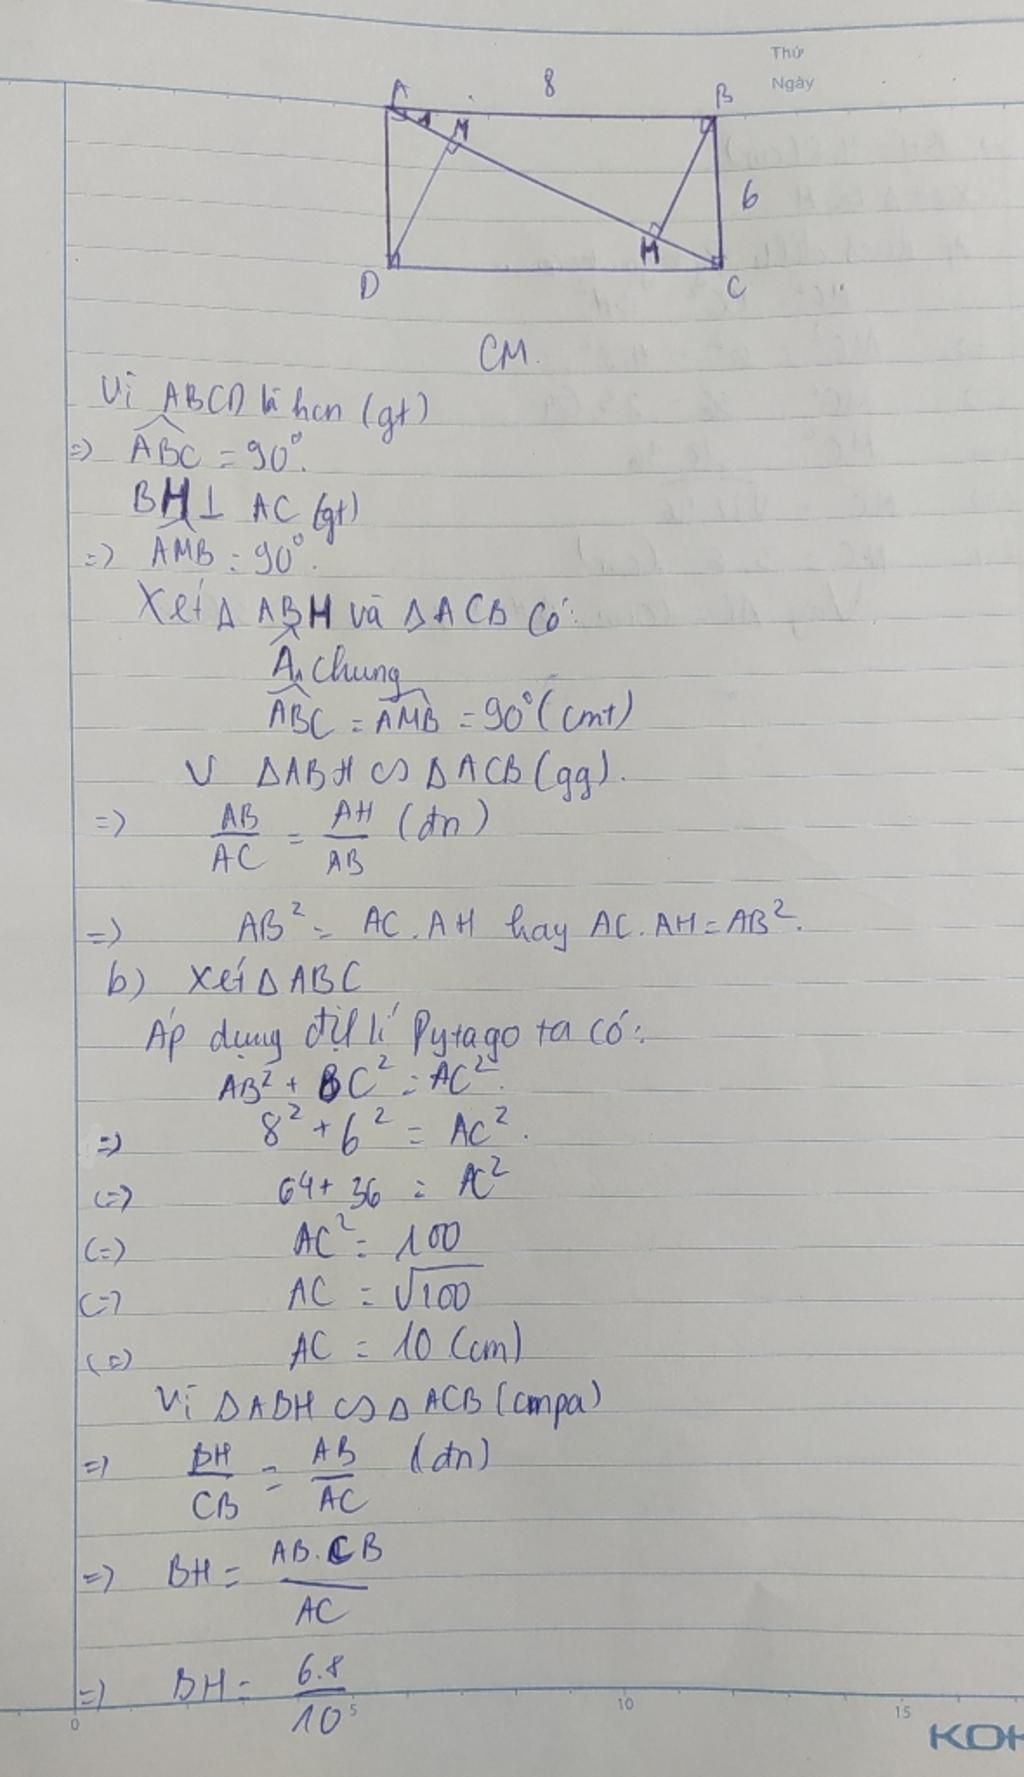 Thứ
Ngày
A 8 B
1 M
6
H
D C
CM.
Vì ABCD là hcn (gt)
=> ABC = 90°.
BH ⊥ AC (gt)
=> AMB = 90°.
Xét Δ ABH và Δ ACB có:
Â₁ chung
ABC = AMB = 90° (cmt)
V ΔABH ∽ ΔACB (gg).
=> AB/AC = AH/AB (đn)
=> AB² = AC.AH hay AC.AH = AB².
b) Xét Δ ABC
Áp dụng định lí Pytago ta có:
AB² + BC² = AC².
=> 8² + 6² = AC².
(=) 64 + 36 = AC²
(=) AC² = 100
(=) AC = √100
(=) AC = 10 (cm)
Vì ΔABH ∽ Δ ACB (cmpa)
=> BH/CB = AB/AC (đn)
=> BH = AB.CB/AC
=> BH = 6.8/10
0 5 10 15
KOK